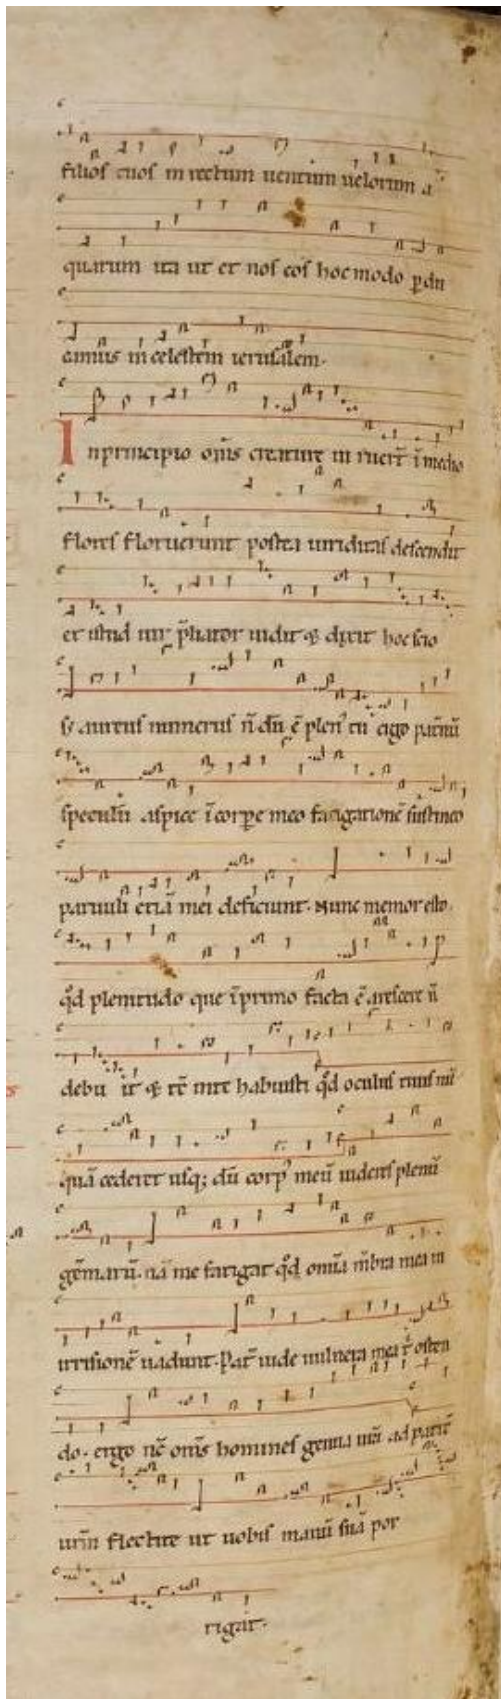 filios tuos in rectum uentum uelorum a
quarum ita ut et nos eos hoc modo p̄du
camus in celestem ierusalem.
In principio om̄s creature uiruer̄t ī medio
flores floruerunt postea uiriditas descendit
et istud uir p̄liator uidit ⁊ dixit hoc scio
sꝫ aureus numerus n̄ dū ē plen᷒ tu ergo pat̄nū
speculū aspice ī corpore meo fatigationē sustineo
paruuli etiā mei deficiunt. Nunc memor esto.
qd̄ plenitudo que ī primo facta ē arescere n̄
debu it ⁊ tc̄ in te habuisti qd̄ oculus tuus nū
quā cederet usq; dū corp᷒ meū uideres plenū
gēmarū. nā me fatigat qd̄ omīa m̄bra mea in
irrisionē uadunt. Pat̄ uide uulnera mea t̄ osten
do. ergo nc̄ om̄s homines genua urā ad patrē
urm̄ flectite ut uobis manū suā por
rigat.